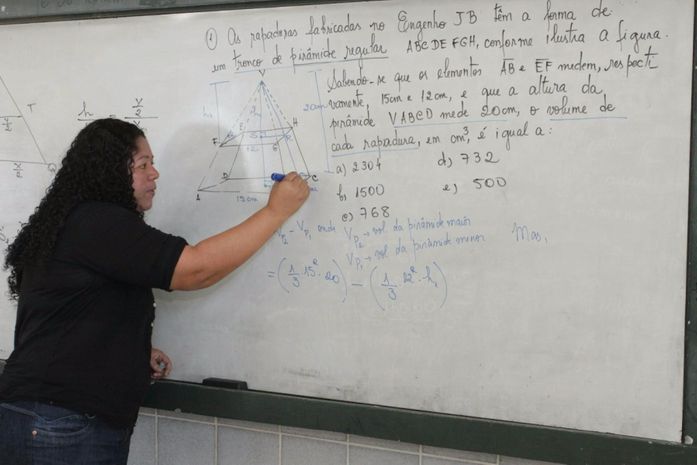 ① As rapaduras fabricadas no Engenho JB têm a forma de
um tronco de pirâmide regular ABCDEFGH, conforme ilustra a figura.
Sabendo-se que os elementos AB e EF medem, respecti
vamente, 15cm e 12cm, e que a altura da
pirâmide VABCD mede 20cm, o volume de
cada rapadura, em cm³, é igual a:
a) 2304 d) 732
b) 1500 e) 500
c) 768
V
h₁
20cm
F
H
E
12
D
C
A
15cm
T
Q
h
=
y/2
x/2
V_P₂ - V_P₁ onde V_P₂ → vol. da pirâmide maior
V_P₁ → vol. da pirâmide menor Mas,
= (1/3 · 15² · 20) - (1/3 · 12² · h₁)